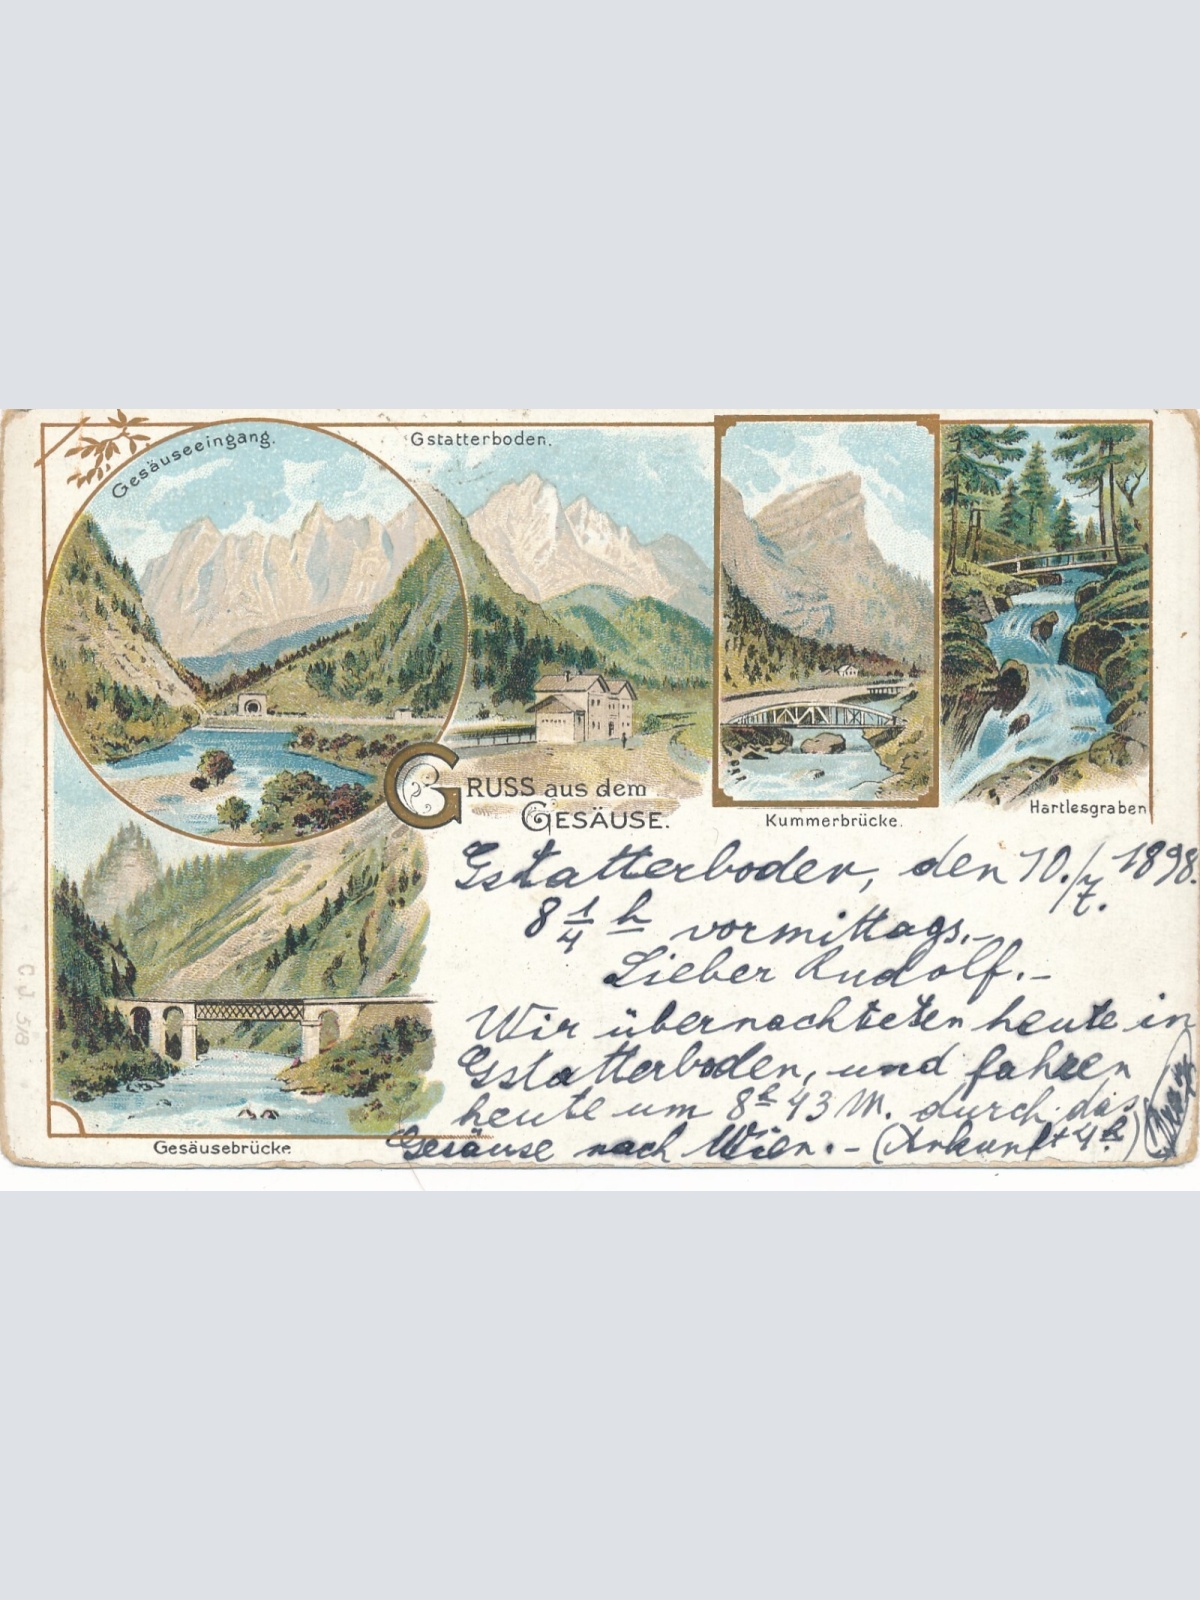 Gesäuseeingang.
Gstatterboden.
Kummerbrücke.
Hartlesgraben
GRUSS aus dem
GESÄUSE.
Gesäusebrücke
C. J. 518
Gstatterboden, den 10./7. 1898.
8 1/4 h vormittags.-
Lieber Rudolf.-
Wir übernachteten heute in
Gstatterboden, und fahren
heute um 8 h 43 M. durch das
Gesäuse nach Wien.- (Ankunft 4 h)